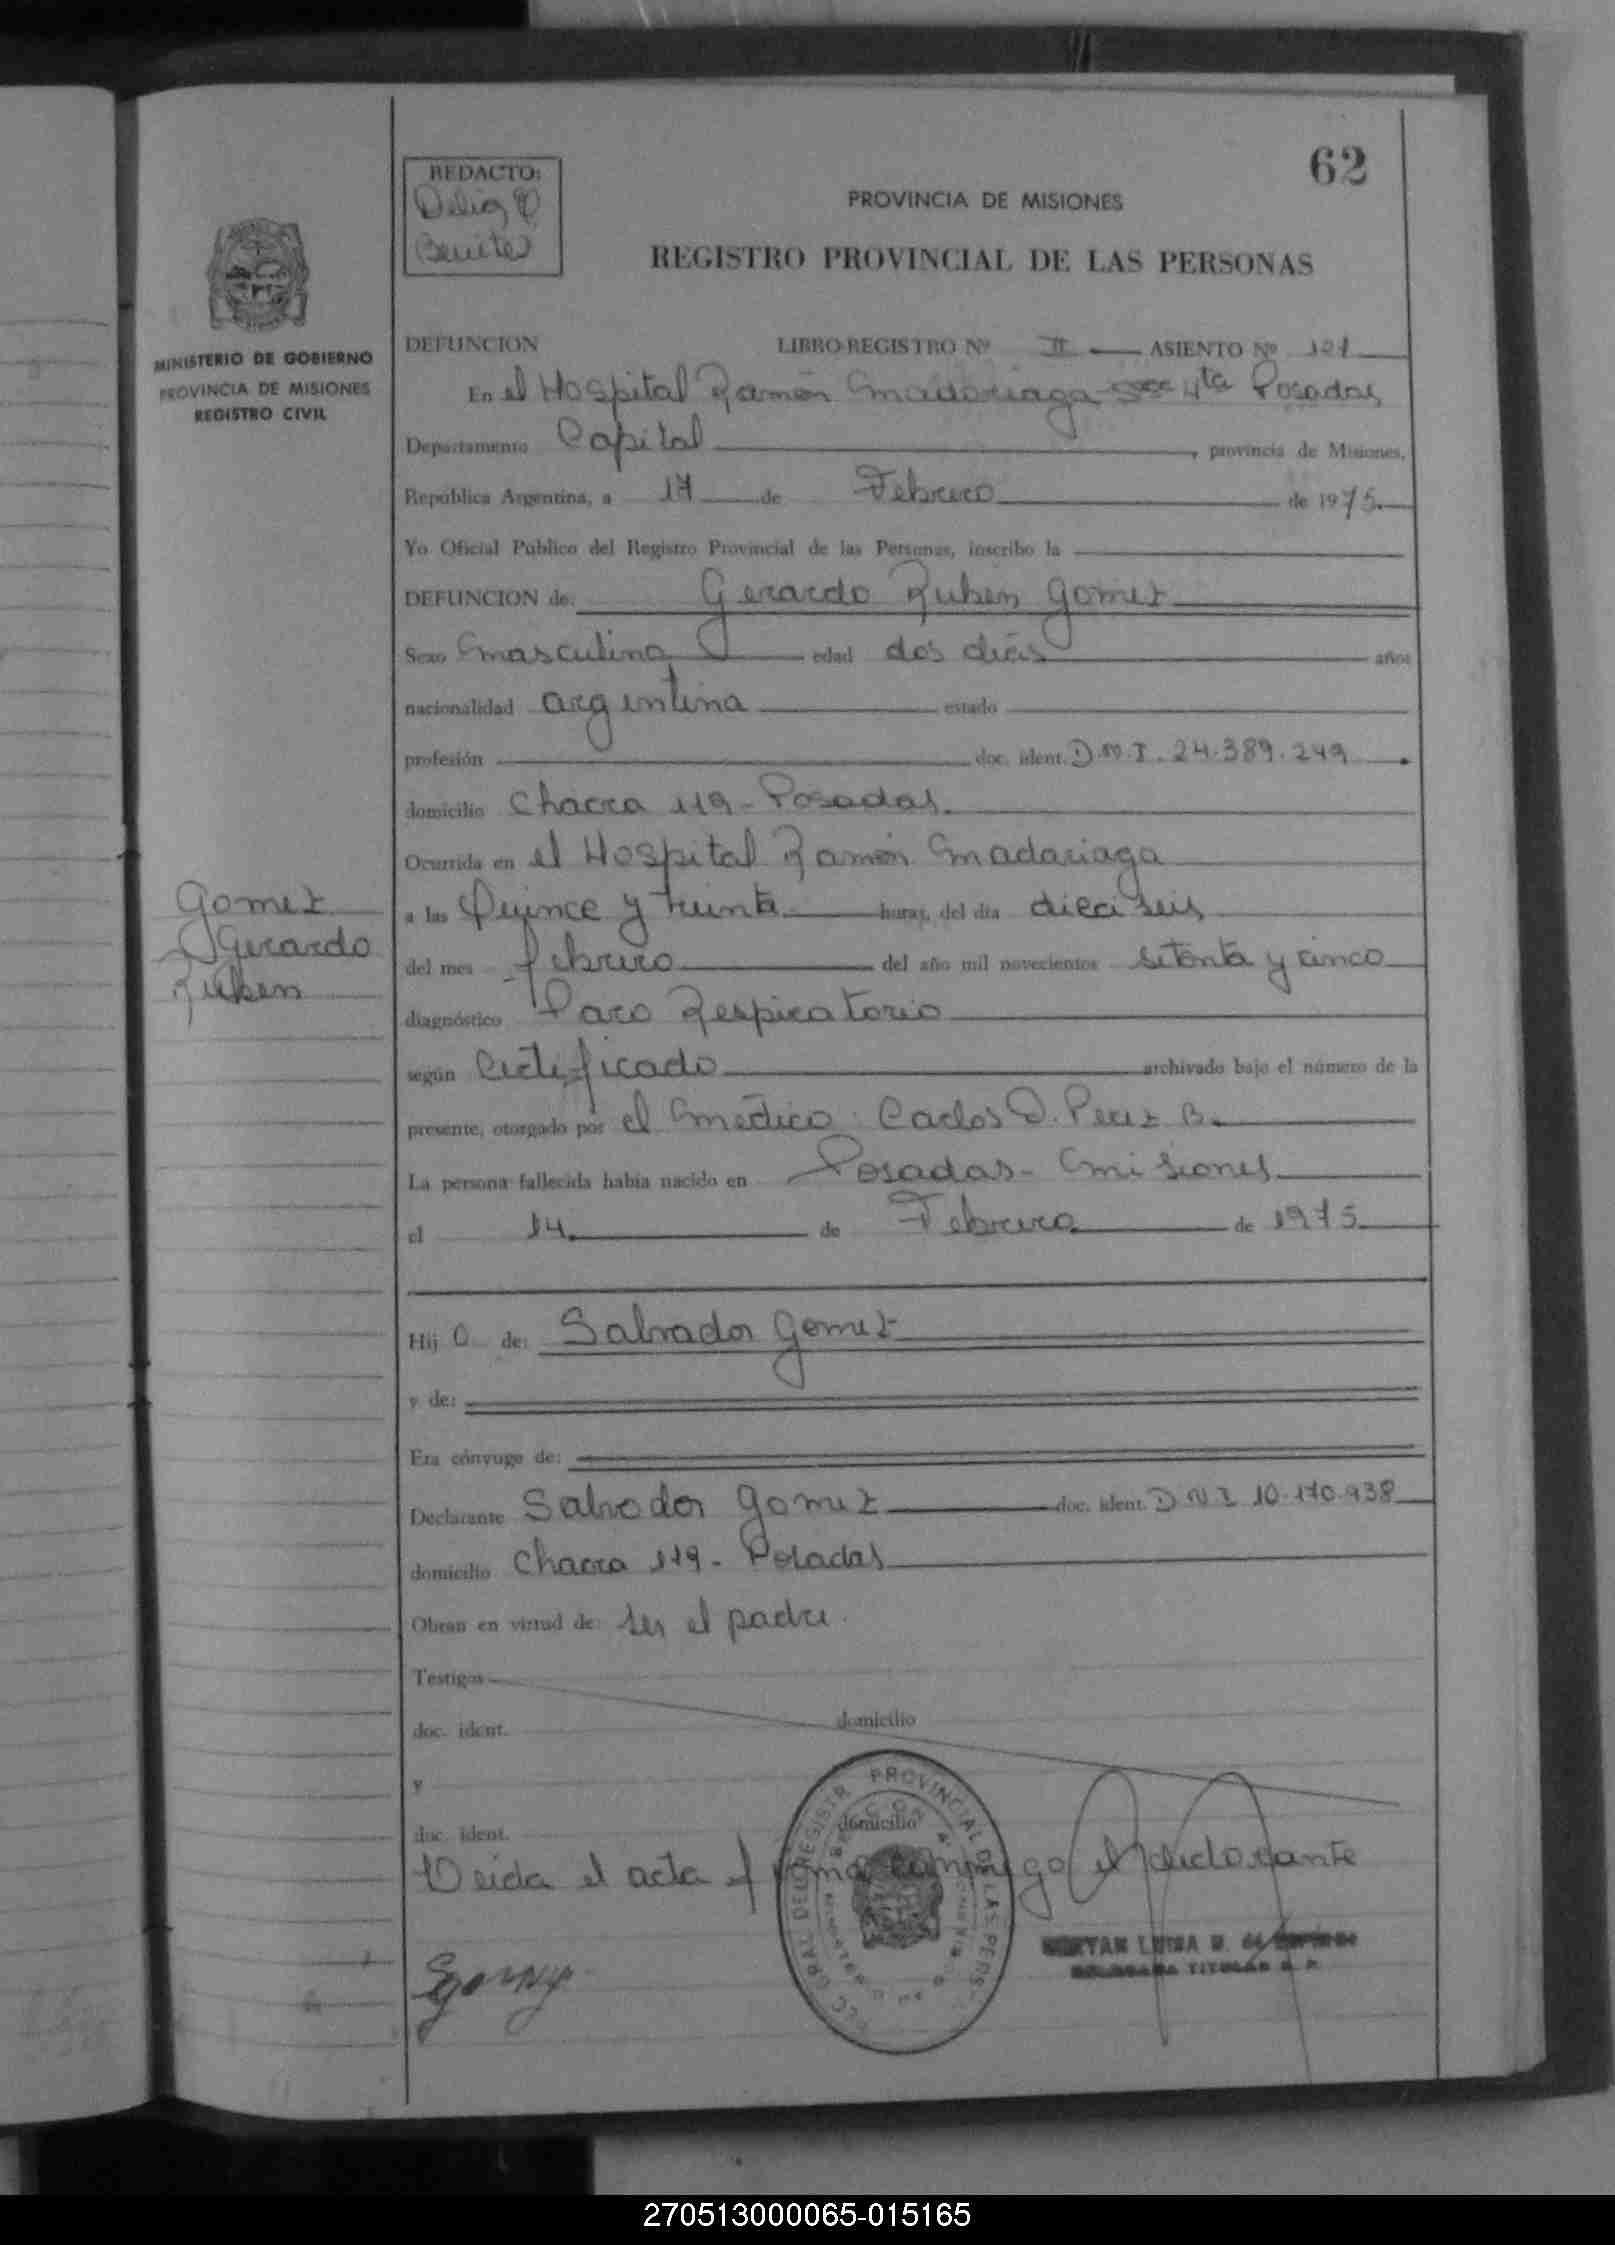 62
REDACTO:
Delia
Benitez
PROVINCIA DE MISIONES
REGISTRO PROVINCIAL DE LAS PERSONAS
MINISTERIO DE GOBIERNO
PROVINCIA DE MISIONES
REGISTRO CIVIL
DEFUNCION LIBRO-REGISTRO Nº II ASIENTO Nº 121
En el Hospital Ramón Madariaga Secc 4ta Posadas
Departamento Capital, provincia de Misiones,
República Argentina, a 17 de Febrero de 1975.
Yo Oficial Público del Registro Provincial de las Personas, inscribo la
DEFUNCION de: Gerardo Ruben Gomez
Sexo masculino edad dos días años
nacionalidad argentina estado
profesión doc. ident. D.N.I. 24.389.249.
domicilio Chacra 119 - Posadas.
Ocurrida en el Hospital Ramón Madariaga
a las Quince y treinta horas, del día dieciseis
del mes febrero del año mil novecientos setenta y cinco
diagnóstico Paro Respiratorio
según Certificado archivado bajo el número de la
presente, otorgado por el médico: Carlos D. Perez B.
La persona fallecida había nacido en Posadas - Misiones
el 14 de Febrero de 1975
Gomez
Gerardo
Ruben
Hij o de: Salvador Gomez
y de:
Era cónyuge de:
Declarante Salvador Gomez doc. ident. D N I 10.170.938
domicilio Chacra 119 - Posadas
Obran en virtud de: ser el padre.
Testigos
doc. ident. domicilio
y
doc. ident. domicilio
Leida el acta firma conmigo el declarante
SGomez
PROVINCIAL DE LAS PERS.
TITULAR
270513000065-015165